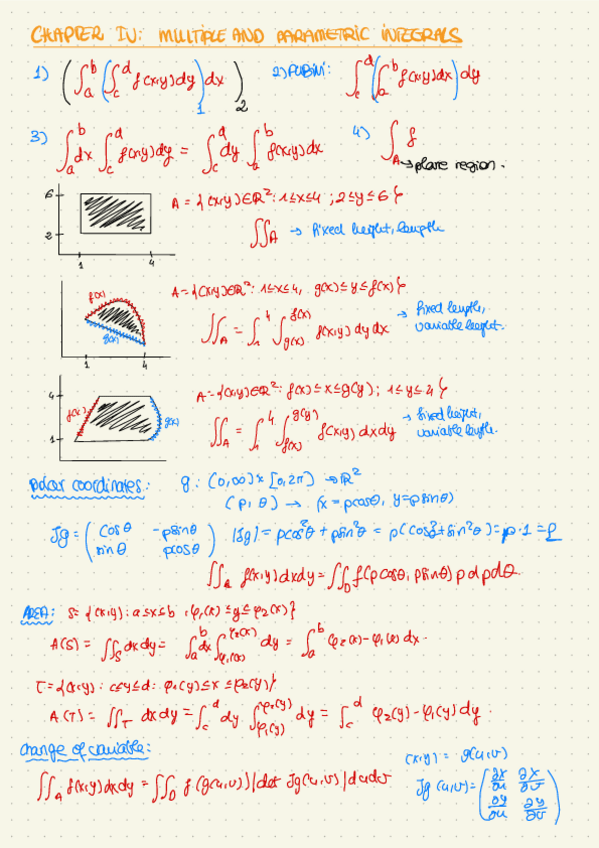 CHAPTER IV: MULTIPLE AND PARAMETRIC INTEGRALS
1) (∫_a^b (∫_c^d f(x,y)dy)_1 dx)_2 2) FUBINI: ∫_c^d (∫_a^b f(x,y)dx) dy
3) ∫_a^b dx ∫_c^d f(x,y)dy = ∫_c^d dy ∫_a^b f(x,y)dx 4) ∫_A f
A → plane region.
6
2
1 4
A = {(x,y)∈ℝ²: 1≤x≤4 ; 2≤y≤6}
∬_A → fixed height, length
f(x)
g(x)
1 4
A = {(x,y)∈ℝ²: 1≤x≤4, g(x)≤y≤f(x)}
∬_A = ∫_1^4 ∫_{g(x)}^{f(x)} f(x,y) dy dx → fixed length,
variable height.
4
f(x) g(x)
1
A = {(x,y)∈ℝ²: f(x)≤x≤g(y); 1≤y≤4}
∬_A = ∫_1^4 ∫_{f(x)}^{g(y)} f(x,y) dx dy → fixed height,
variable length.
polar coordinates: g: (0,∞)×[0,2π] → ℝ²
(ρ, θ) → (x=ρcosθ, y=ρsinθ)
Jg = (cosθ -ρsinθ
sinθ ρcosθ) |Jg| = ρcos²θ + ρsin²θ = ρ(cos²θ+sin²θ) = ρ·1 = ρ
∬_A f(x,y)dxdy = ∬_D f(ρcosθ, ρsinθ) ρ dρdθ.
AREA: S = {(x,y): a≤x≤b, φ₁(x)≤y≤φ₂(x)}
A(S) = ∬_S dxdy = ∫_a^b dx ∫_{φ₁(x)}^{φ₂(x)} dy = ∫_a^b φ₂(x)-φ₁(x) dx.
T = {(x,y): c≤y≤d: φ₁(y)≤x≤φ₂(y)}
A(T) = ∬_T dxdy = ∫_c^d dy ∫_{φ₁(y)}^{φ₂(y)} dy = ∫_c^d φ₂(y)-φ₁(y) dy.
change of variable:
(x,y) = g(u,v)
∬_A f(x,y)dxdy = ∬_D f(g(u,v)) |det Jg(u,v)| dudv
Jg(u,v) = (∂x/∂u ∂x/∂v
∂y/∂u ∂y/∂v)